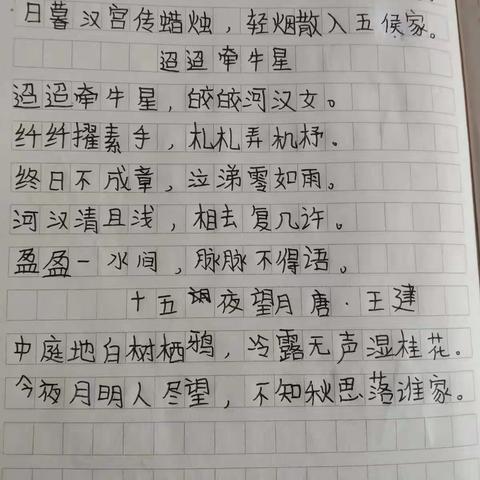 日暮汉宫传蜡烛，轻烟散入五侯家。
迢迢牵牛星
迢迢牵牛星，皎皎河汉文。
纤纤擢素手，札札弄机杼。
终日不成章，泣涕零如雨。
河汉清且浅，相去复几许。
盈盈一水间，脉脉不得语。
十五夜望月 唐·王建
中庭地白树栖鸦，冷露无声湿桂花。
今夜月明人尽望，不知秋思落谁家。